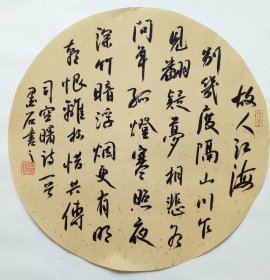 故人江海
别几度隔山川乍
见翻疑梦相悲各
问年孤灯寒照夜
深竹暗浮烟更有明
朝恨离杯惜共传
司空曙诗一首
墨石书之